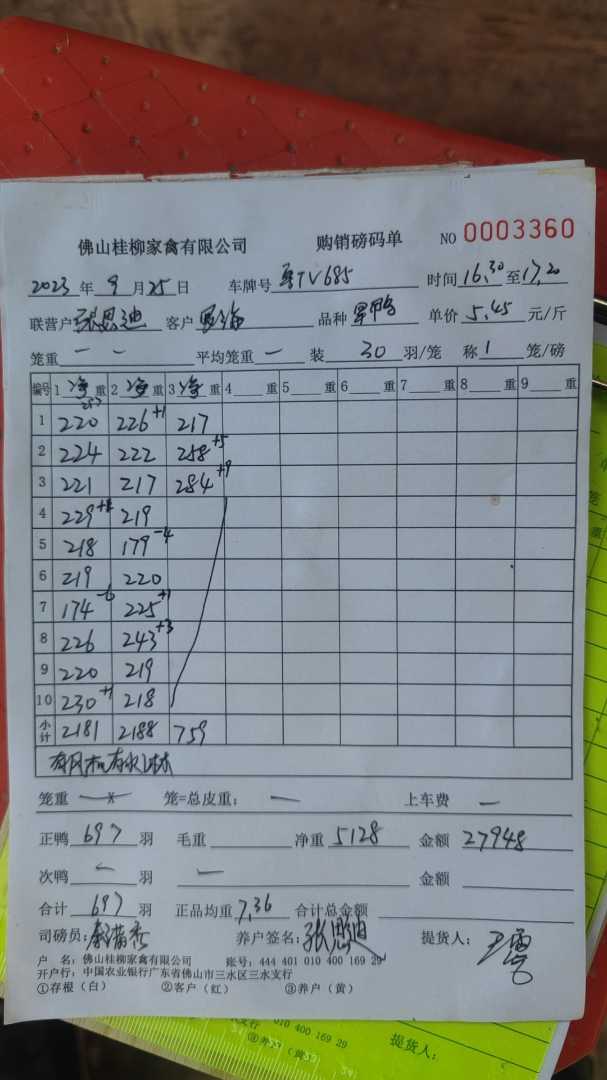 佛山桂柳家禽有限公司 购销磅码单 NO 0003360
2023 年 9 月 25 日 车牌号 粤TV685 时间 16,30 至 17,20
联营户 张思迪 客户 品种 单价 5.45 元/斤
笼重 一 一 平均笼重 一 装 30 羽/笼 称 1 笼/磅
编号 1 净 重 2 净 重 3 净 重 4 重 5 重 6 重 7 重 8 重 9 重
1 220 226 +1 217
2 224 222 258 +5
3 221 217 284 +9
4 229 219
5 218 179 -4
6 219 220
7 174 -6 225 +1
8 226 243 +3
9 220 219
10 230 +1 218
小计 2181 2188 759
笼重 笼=总皮重: 一 上车费 一
正鸭 697 羽 毛重 净重 5128 金额 27948
次鸭 一 羽 一 金额
合计 697 羽 正品均重 7,36 合计总金额
司磅员: 养户签名: 张思迪 提货人:
户 名: 佛山桂柳家禽有限公司 账号: 444 401 010 400 169 29
开户行: 中国农业银行广东省佛山市三水区三水支行
①存根(白) ②客户(红) ③养户(黄)
010 400 169 29
提货人: